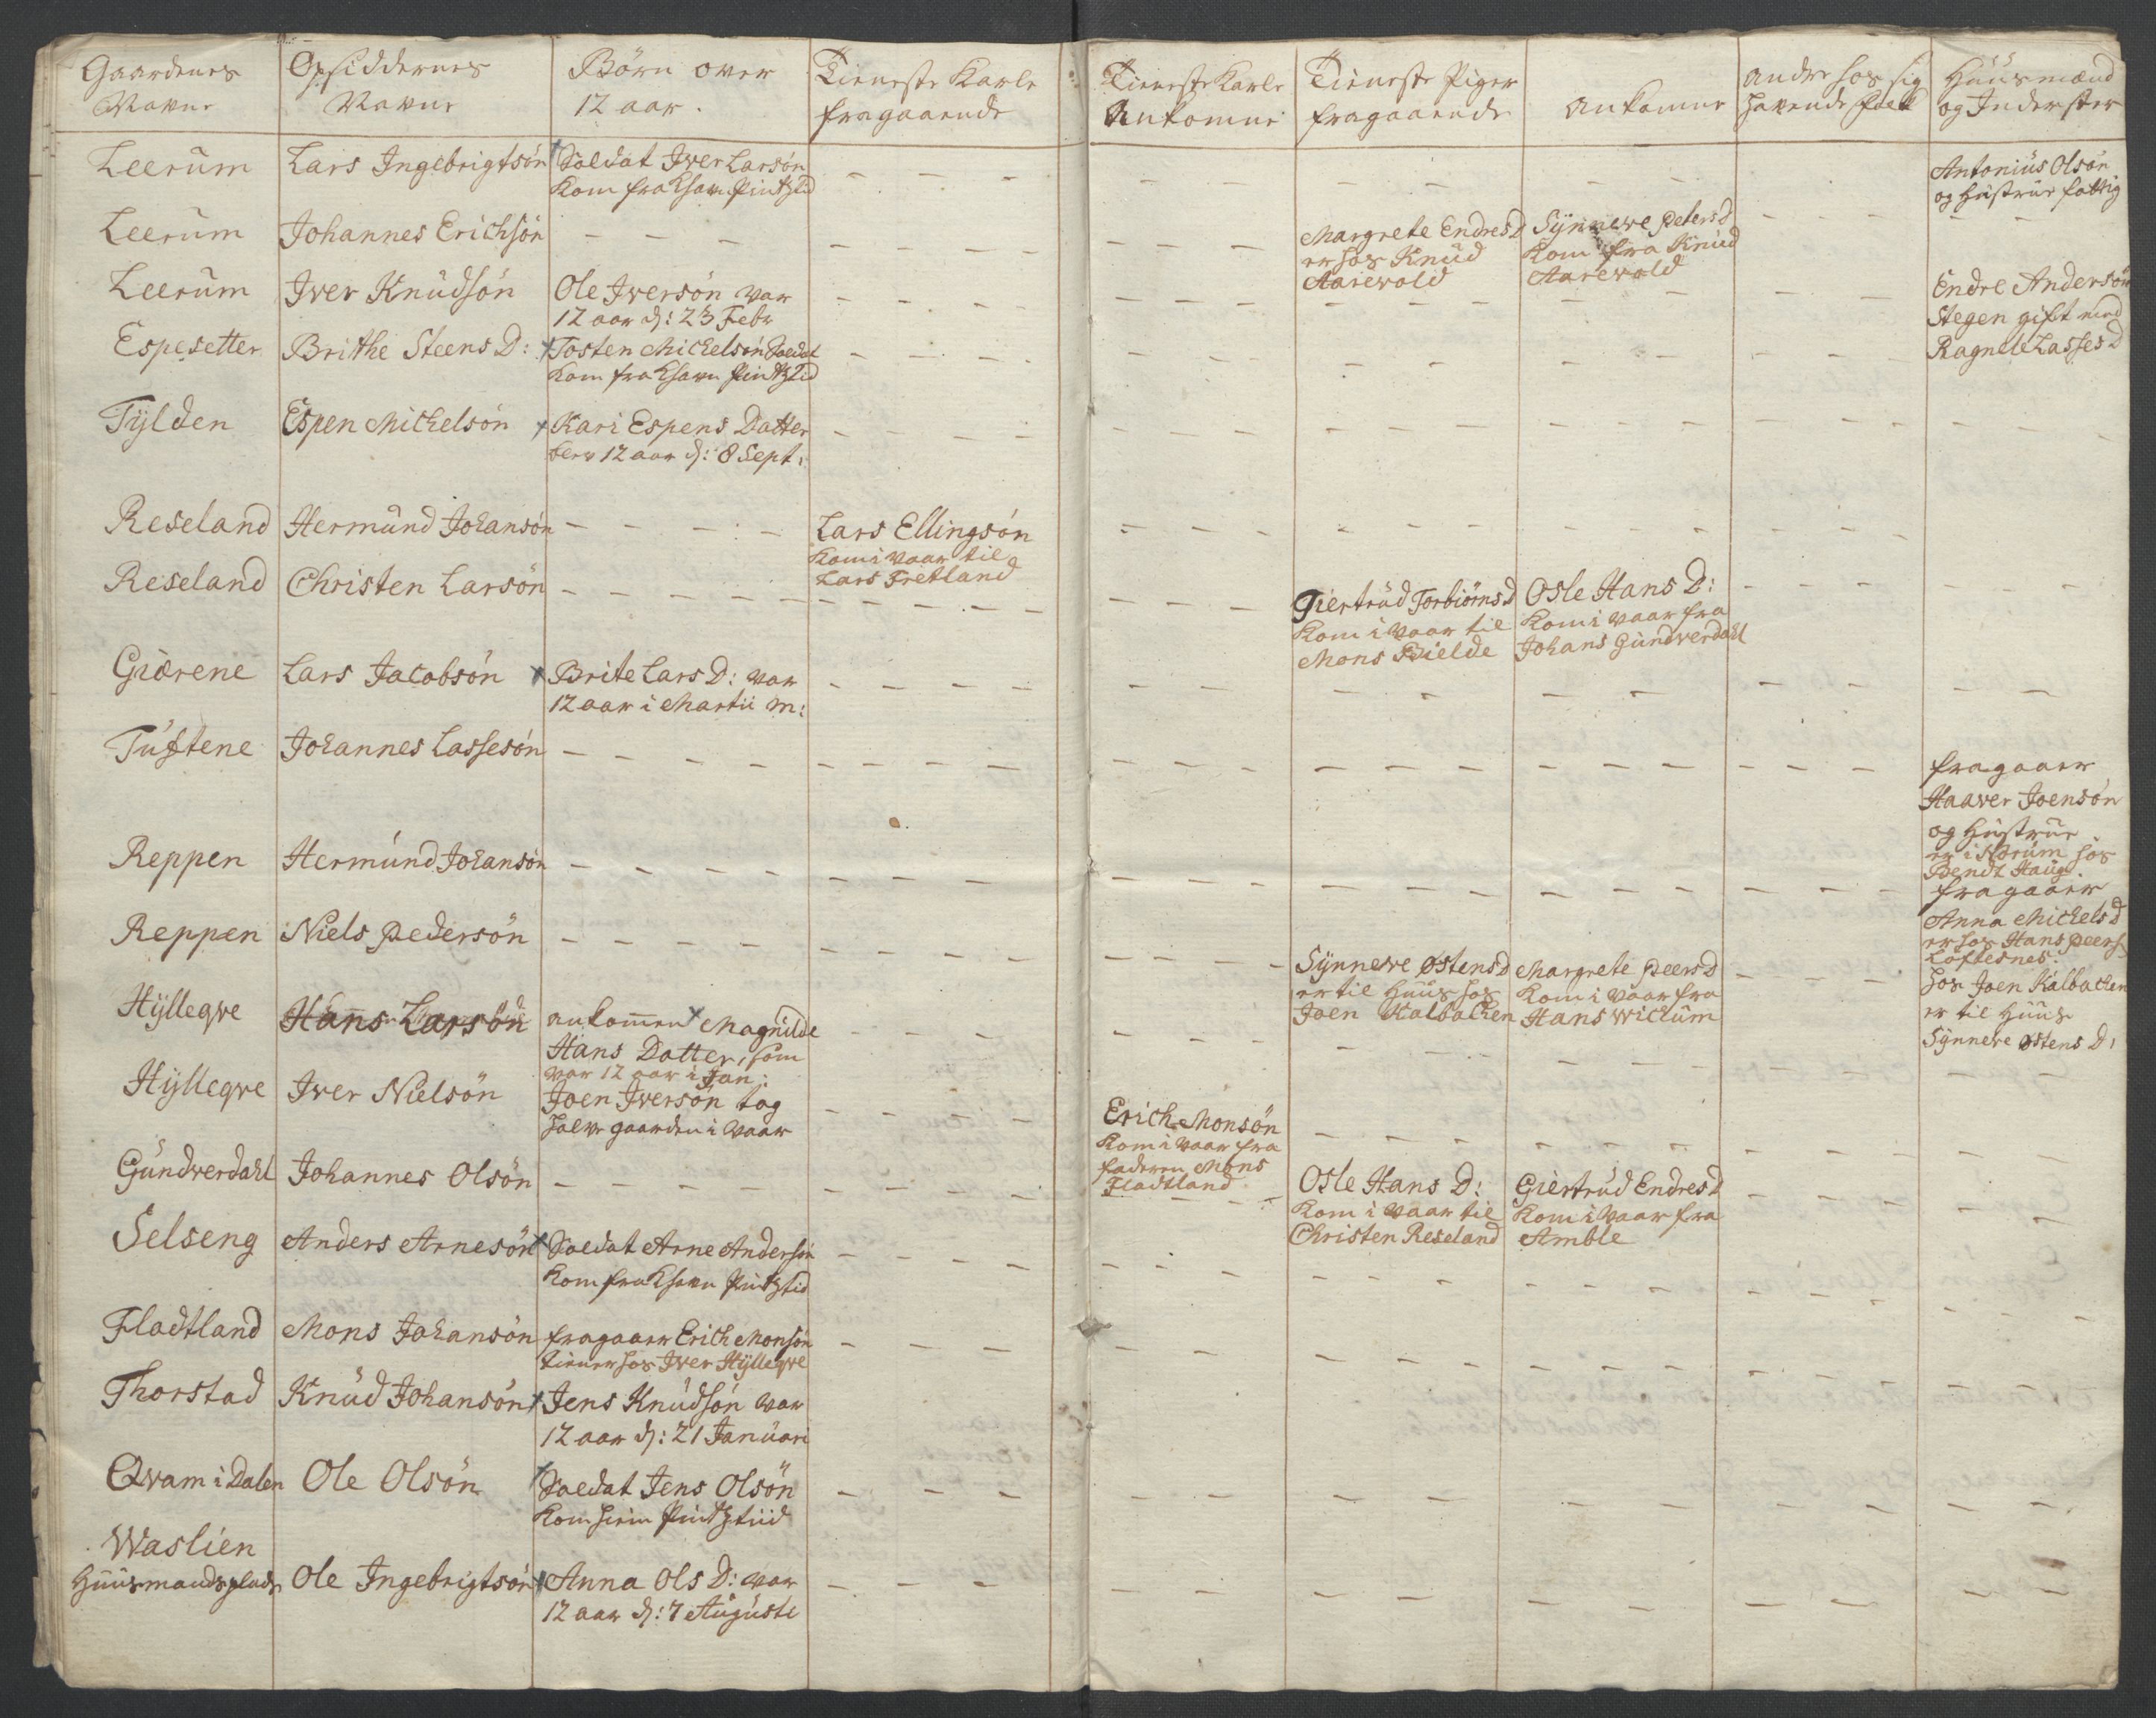 Gaardenes Navne
Opsiddernes Navne
Börn over 12 aar.
Tieneste Karle fragaaende
Tieneste Karle Ankomne
Tieneste Piger fragaaende
ankomne
andre hos sig havende folk
Huusmænd og Inderster
Leerum
Lars Ingebrigtsön
Soldat Iver Larsön
kom fra Khavn Pintztid
Antonius Olsön
og Hustrue fattig
Leerum
Johannes Erichsön
Margrete Endres D
er hos Knud
Aarevold
Synneve Peters D
kom fra Knud
Aarevold
Leerum
Iver Knudsön
Ole Iversön var
12 aar d: 23 Febr
Endre Andersön
Stegen gift med
Ragnele Lasses D
Espesetter
Brithe Steens D:
Tosten Michelsön Soldat
kom fra Khavn Pintztid
Tylden
Espen Michelsön
Kari Espens Datter
blev 12 aar d: 8 Sept:
Reseland
Hermund Johansön
Lars Ellingsön
kom i vaar til
Lars Fretland
Reseland
Christen Larsön
Giertrud Torbiörns D
kom i vaar til
Mons Bielde
Osle Hans D:
kom i vaar fra
Johans Gundverdahl
Giærene
Lars Jacobsön
Brite Lars D: var
12 aar i Martii m:
Tuftene
Johannes Lassesön
fragaaer
Haaver Joensön
og Hustrue
er i Norum hos
Bendt Haug
Reppen
Hermund Johansön
fragaaer
Anna Michels D
er hos Hans Peers
Loftesnes.
Reppen
Niels Pedersön
Synneve Östens D
er til Huus hos
Joen Kalbachen
Margrete Peers D
kom i vaar fra
Hans Wichum
hos Joen Kalbachen
er til Huus
Synneve Östens D:
Hyllegve
Hans Larsön
ankommen Magnilde
Hans Datter, som
var 12 aar i Jan:
Hyllegve
Iver Nielsön
Joen Iversön tog
halve gaarden i vaar
Erich Monsön
kom i vaar fra
faderen Mons
Fladtland
Gundverdahl
Johannes Olsön
Osle Hans D:
kom i vaar til
Christen Reseland
Giertrud Endres D
kom i vaar fra
Amble
Selseng
Anders Arnesön
Soldat Arne Andersön
kom fra Khavn Pintztid
Fladtland
Mons Johansön
fragaaer Erich Monsön
tiener hos Iver Hyllegve
Thorstad
Knud Johansön
Jens Knudsön var
12 aar d: 21 Januari
Qvam i Dalen
Ole Olsön
Soldat Jens Olsön
kom hiem Pintztiid
Waslien
Huusmandsplads
Ole Ingebrigtsön
Anna Ols D: var
12 aar d: 7 Auguste